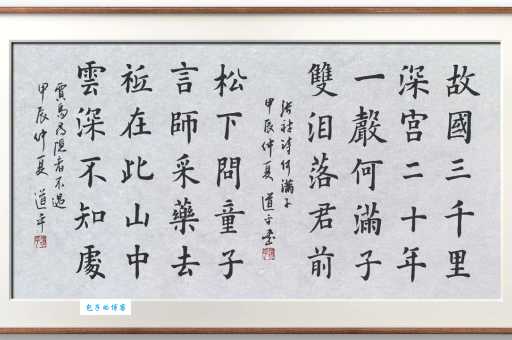 故國三千里
深宮二十年
一聲何滿子
雙泪落君前
張祜詩何滿子
甲辰仲夏 道平書
松下問童子
言師采藥去
祗在此山中
雲深不知處
賈島尋隱者不遇
甲辰仲夏 道平